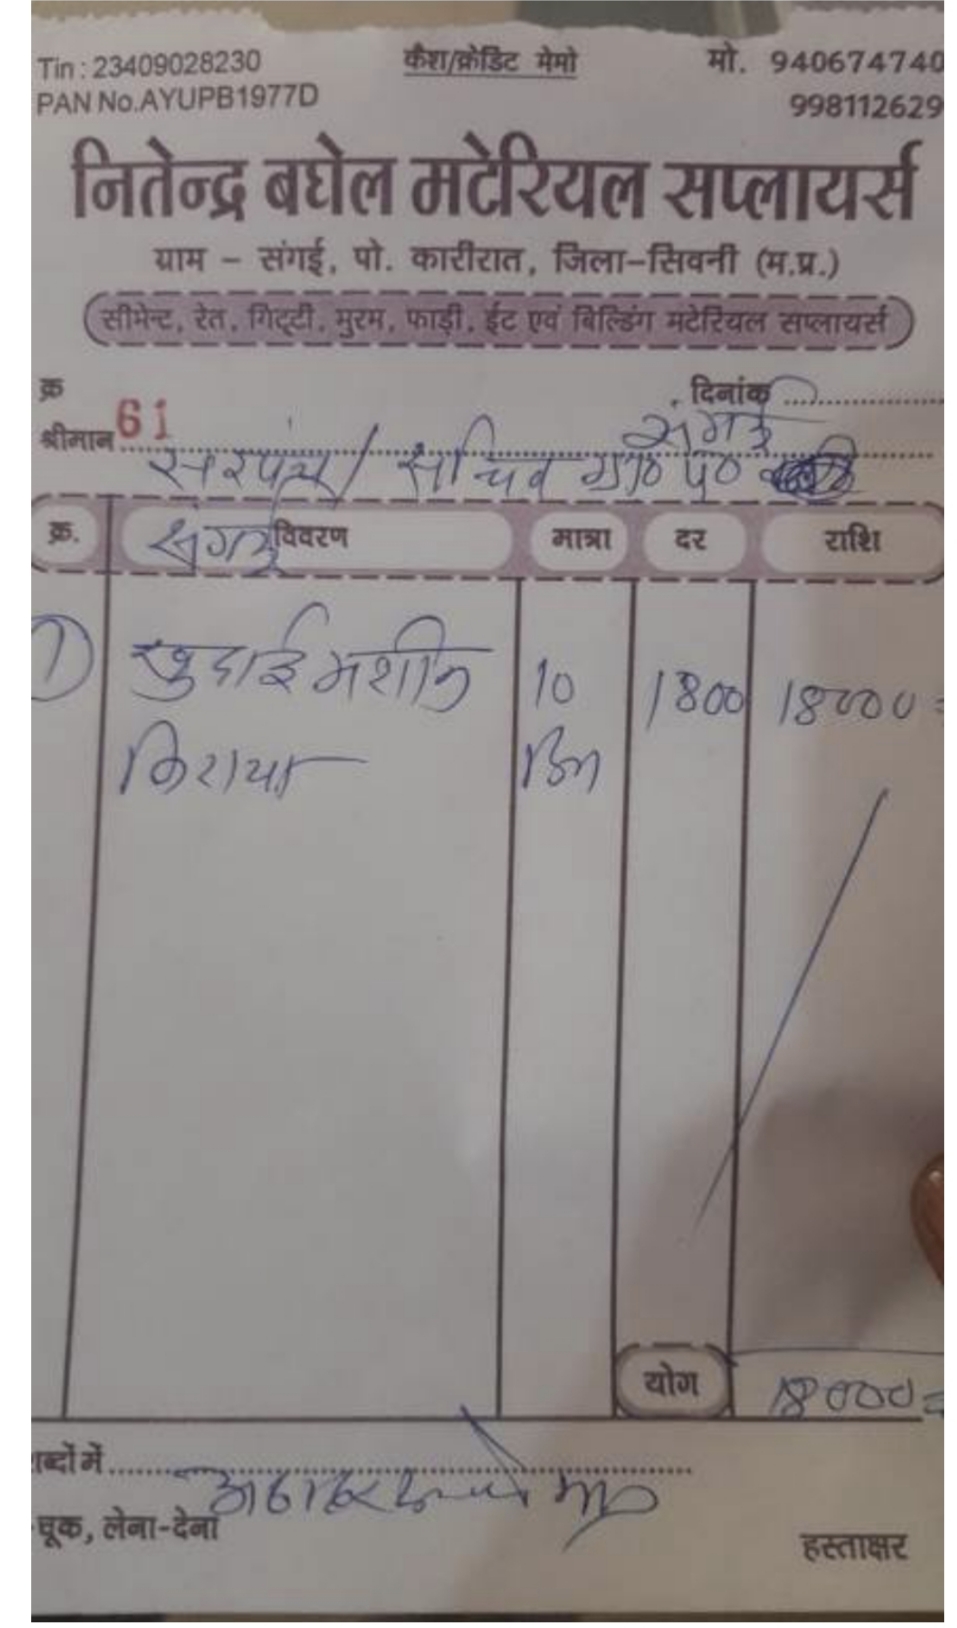 Tin : 23409028230 कैश/क्रेडिट मेमो मो. 940674740
PAN No.AYUPB1977D 998112629
नितेन्द्र बघेल मटेरियल सप्लायर्स
ग्राम – संगई, पो. कारीरात, जिला–सिवनी (म.प्र.)
सीमेन्ट, रेत, गिट्टी, मुरम, फाड़ी, ईट एवं बिल्डिंग मटेरियल सप्लायर्स
क्र 61 दिनांक
श्रीमान संगई
सरपंच / सचिव ग्रा० पं०
संगई
क्र. विवरण मात्रा दर राशि
1 खुदाई मशीन 10 1800 18000=
किराया दिन
योग 18000=
शब्दों में अठारह हजार रूपये मात्र
-चूक, लेना-देना
हस्ताक्षर